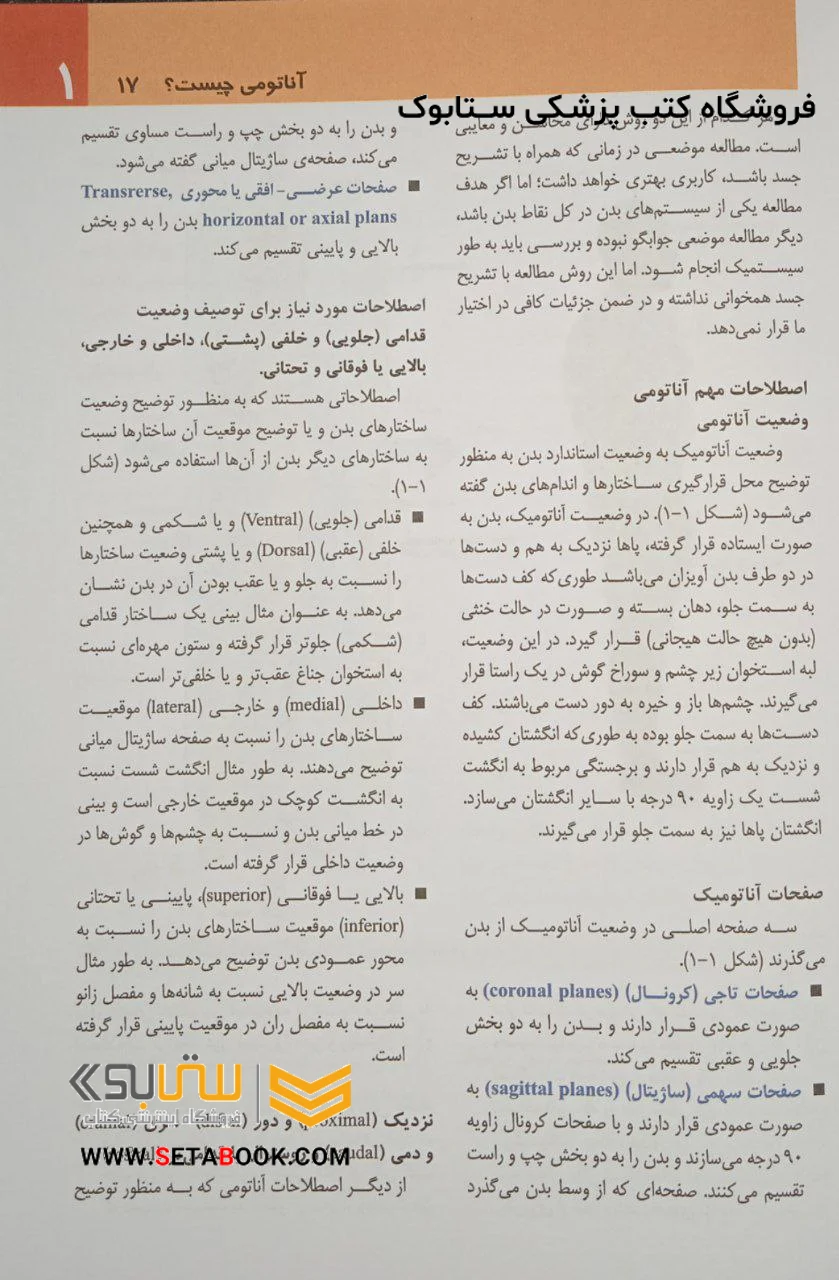 آناتومی چیست؟ ۱۷
۱
فروشگاه کتب پزشکی ستابوک
هر کدام از این دو روش دارای محاسن و معایبی
است. مطالعه موضعی در زمانی که همراه با تشریح
جسد باشد، کاربری بهتری خواهد داشت؛ اما اگر هدف
مطالعه یکی از سیستم‌های بدن در کل نقاط بدن باشد،
دیگر مطالعه موضعی جوابگو نبوده و بررسی باید به طور
سیستمیک انجام شود. اما این روش مطالعه با تشریح
جسد همخوانی نداشته و در ضمن جزئیات کافی در اختیار
ما قرار نمی‌دهد.
اصطلاحات مهم آناتومی
وضعیت آناتومی
وضعیت آناتومیک به وضعیت استاندارد بدن به منظور
توضیح محل قرارگیری ساختارها و اندام‌های بدن گفته
می‌شود (شکل ۱-۱). در وضعیت آناتومیک، بدن به
صورت ایستاده قرار گرفته، پاها نزدیک به هم و دست‌ها
در دو طرف بدن آویزان می‌باشد طوری‌که کف دست‌ها
به سمت جلو، دهان بسته و صورت در حالت خنثی
(بدون هیچ حالت هیجانی) قرار گیرد. در این وضعیت،
لبه استخوان زیر چشم و سوراخ گوش در یک راستا قرار
می‌گیرند. چشم‌ها باز و خیره به دور دست می‌باشند. کف
دست‌ها به سمت جلو بوده به طوری‌که انگشتان کشیده
و نزدیک به هم قرار دارند و برجستگی مربوط به انگشت
شست یک زاویه ۹۰ درجه با سایر انگشتان می‌سازد.
انگشتان پاها نیز به سمت جلو قرار می‌گیرند.
صفحات آناتومیک
سه صفحه اصلی در وضعیت آناتومیک از بدن
می‌گذرند (شکل ۱-۱).
■ صفحات تاجی (کرونال) (coronal planes) به
صورت عمودی قرار دارند و بدن را به دو بخش
جلویی و عقبی تقسیم می‌کند.
■ صفحات سهمی (ساژیتال) (sagittal planes) به
صورت عمودی قرار دارند و با صفحات کرونال زاویه
۹۰ درجه می‌سازند و بدن را به دو بخش چپ و راست
تقسیم می‌کنند. صفحه‌ای که از وسط بدن می‌گذرد
و بدن را به دو بخش چپ و راست مساوی تقسیم
می‌کند، صفحه‌ی ساژیتال میانی گفته می‌شود.
■ صفحات عرضی- افقی یا محوری Transrerse,
horizontal or axial plans بدن را به دو بخش
بالایی و پایینی تقسیم می‌کند.
اصطلاحات مورد نیاز برای توصیف وضعیت
قدامی (جلویی) و خلفی (پشتی)، داخلی و خارجی،
بالایی یا فوقانی و تحتانی.
اصطلاحاتی هستند که به منظور توضیح وضعیت
ساختارهای بدن و یا توضیح موقعیت آن ساختارها نسبت
به ساختارهای دیگر بدن از آن‌ها استفاده می‌شود (شکل
۱-۱).
■ قدامی (جلویی) (Ventral) و یا شکمی و همچنین
خلفی (عقبی) (Dorsal) و یا پشتی وضعیت ساختارها
را نسبت به جلو و یا عقب بودن آن در بدن نشان
می‌دهد. به عنوان مثال بینی یک ساختار قدامی
(شکمی) جلوتر قرار گرفته و ستون مهره‌ای نسبت
به استخوان جناغ عقب‌تر و یا خلفی‌تر است.
■ داخلی (medial) و خارجی (lateral) موقعیت
ساختارهای بدن را نسبت به صفحه ساژیتال میانی
توضیح می‌دهند. به طور مثال انگشت شست نسبت
به انگشت کوچک در موقعیت خارجی است و بینی
در خط میانی بدن و نسبت به چشم‌ها و گوش‌ها در
وضعیت داخلی قرار گرفته است.
■ بالایی یا فوقانی (superior)، پایینی یا تحتانی
(inferior) موقعیت ساختارهای بدن را نسبت به
محور عمودی بدن توضیح می‌دهد. به طور مثال
سر در وضعیت بالایی نسبت به شانه‌ها و مفصل زانو
نسبت به مفصل ران در موقعیت پایینی قرار گرفته
است.
نزدیک (proximal) و دور
و دمی (caudal)
از دیگر اصطلاحات آناتومی که به منظور توضیح
ستابوک
فروشگاه اینترنتی کتاب
WWW.SETABOOK.COM